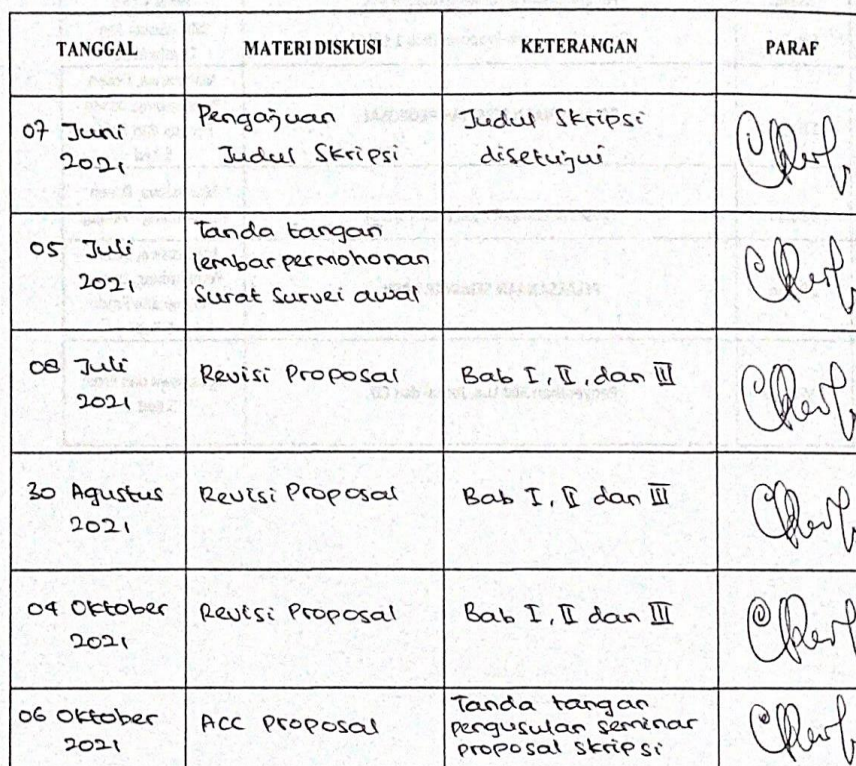 TANGGAL MATERI DISKUSI KETERANGAN PARAF
07 Juni Pengajuan Judul Skripsi
2021 Judul Skripsi disetujui
05 Juli Tanda tangan
2021 lembar permohonan
Surat Survei awal
08 Juli Revisi Proposal Bab I, II, dan III
2021
30 Agustus Revisi Proposal Bab I, II dan III
2021
04 Oktober Revisi Proposal Bab I, II dan III
2021
06 Oktober ACC Proposal Tanda tangan
2021 pengusulan seminar
proposal skripsi